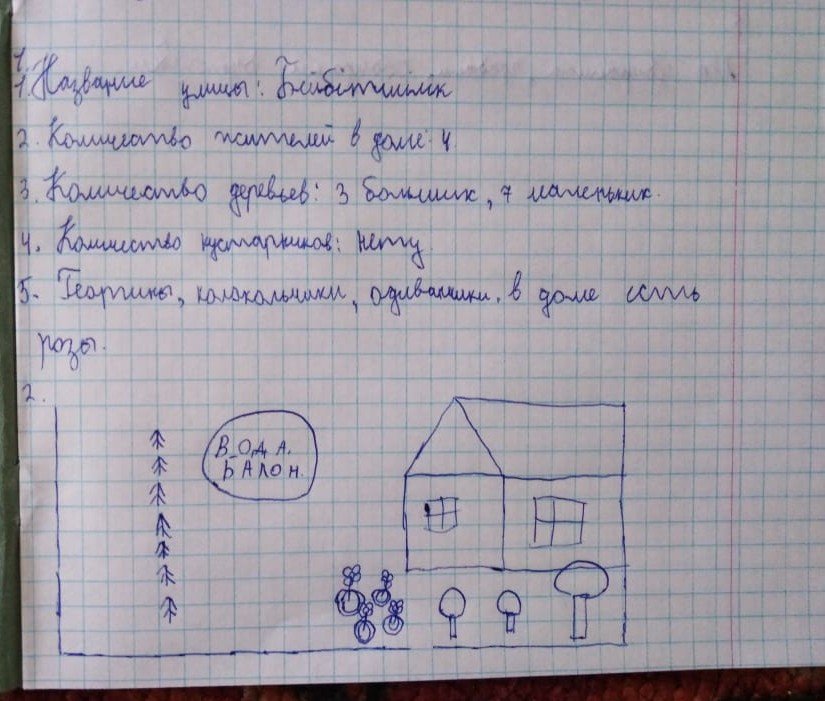 1.
1. Название улицы: Бейбітшілік
2. Количество жителей в доме: 4
3. Количество деревьев: 3 больших, 7 маленьких.
4. Количество кустарников: нету.
5. Георгины, колокольчики, одуванчики. в доме есть
розы.
2.
ВОДА.
БАЛОН.